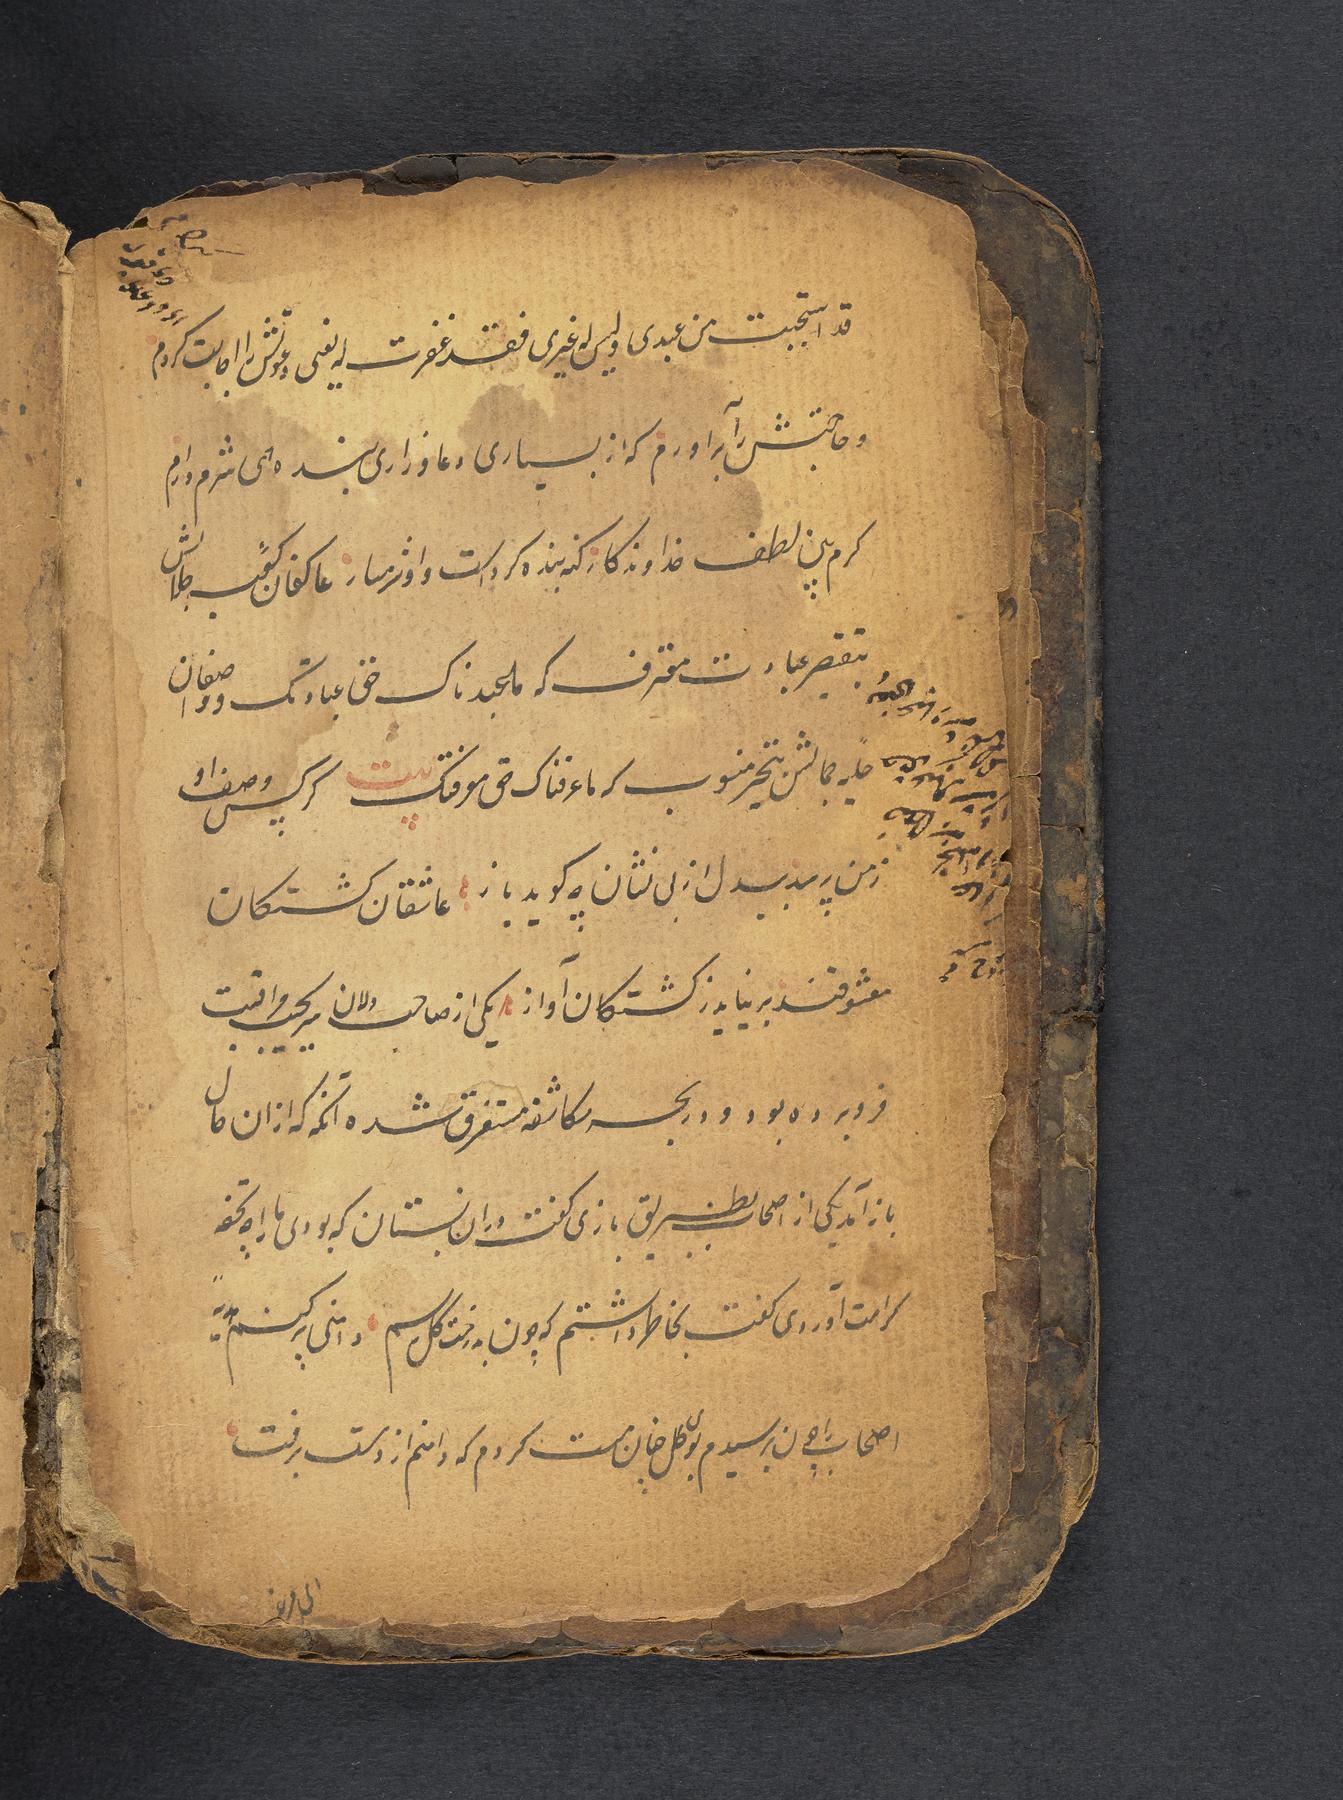 قد استجبت من عبدی ولیس له غیری فقد غفرت له یعنی دعوتش را اجابت کردم
و حاجتش را برآوردم که از بسیاری دعا و زاری بنده همی شرم دارم
کرم بین لطف خداوندکار کنه بنده کردست و او شرمسار عاکفان کعبه جلالش
بتقصیر عبادت معترف که ما عبدناک حق عبادتک و واصفان
حلیه جمالش بتحیر منسوب که ما عرفناک حق معرفتک بیت کر کسی وصف او
ز من پرسد بیدل از بی نشان چه کوید باز عاشقان کشتکان
معشوقند بر نیاید ز کشتکان آواز یکی از صاحب دلان سر بجیب مراقبت
فرو برده بود و در بحر مکاشفه مستغرق شده آنکه که ازان حال
باز آمد یکی از اصحاب بطریق بازی کفت دران بستان که بودی ما را چه تحفه
کرامت آوردی کفت بخاطر داشتم که چون بدرخت کل برسم دامنی پر کنم هدیهٔ
اصحاب را چون برسیدم بوی کل چنان مست کردم که دامنم از دست برفت